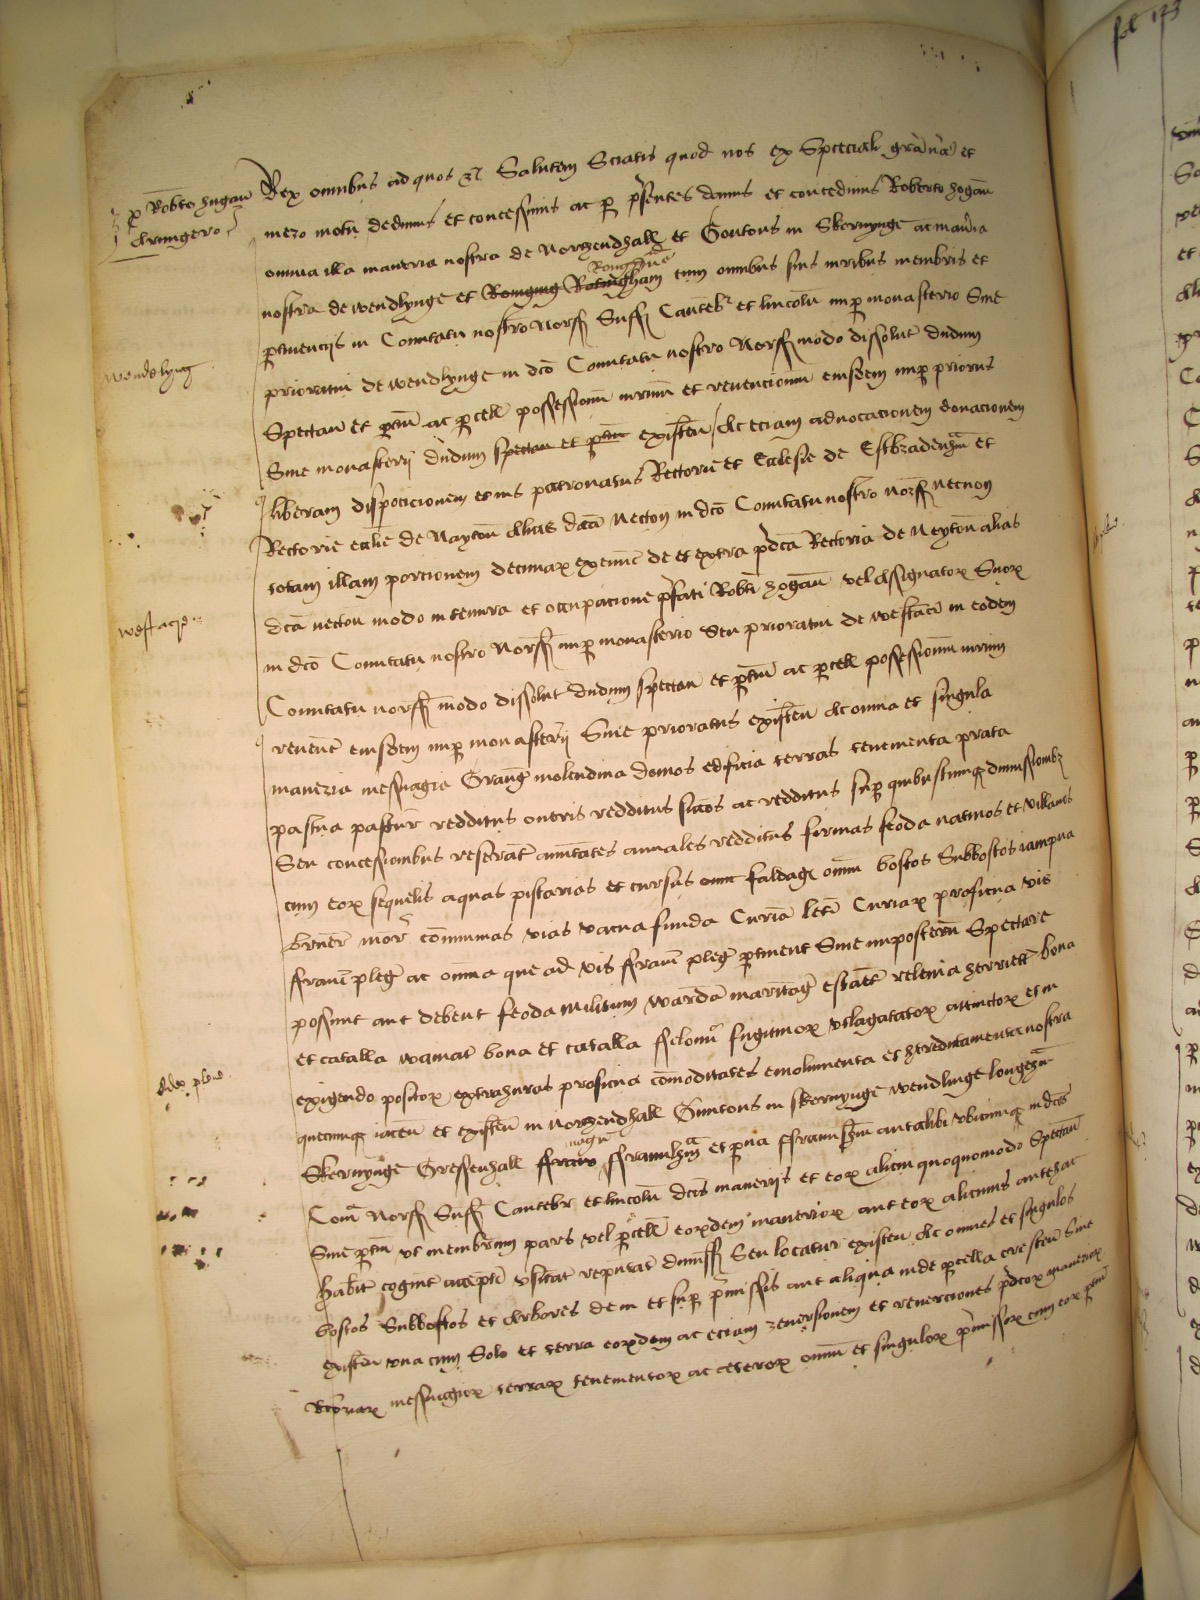 fol 123
p Robto hogan
Armigero
Rex omnibus ad quos &c Salutem Sciatis quod nos ex Speciali gra nra et
mero motu dedimus et concessimus ac per presentes damus et concedimus Roberto hogan
omnia illa maneria nostra de Northendhall et Gontons in Skernynge ac maneria
nostra de wendlynge et cum omnibus suis iuribus membris et
ptinenciis in Comitatu nostro Norff Suff Cantebr et lincoln nup monasterio Sive
prioratui de wendlynge in dco Comitatu nostro Norff modo dissolut dudum
Spectan et ptin ac pcell possessionu iurium et revencionum eiusdem nup prioratus
Sive monasterij dudum spectan et ptin existen Ac eciam advocacionem donacionem
liberam disposicionem et ius patronatus Rectorie et Ecclesie de Estbradenhm et
Rectorie ecclie de Nayton Alias dcta Necton in dco Comitatu nostro norff necnon
totam illam porcionem decimar exeunt de et extra pdca Rectoria de Neyton alias
dca necton modo in tenura et occupacione pfati Robti hogan vel Assignator Suor
in dco Comitatu nostro Norff nup monasterio Seu prioratui de westacre in eodem
Comitatu norff modo dissolut dudum spectan et ptin ac pcell possessionum iurium
revenc eiusdem nup monasterij Sive prioratus existen Ac omnia et singula
maneria messuagia Grang molendina domos edificia terras tenementa prata
pascua pastur redditus oneris redditus siccos ac redditus sup quibuscumq dimissionibz
Seu concessionibus reservat annuitates annales redditus firmas feoda nativos et villanos
cum eor sequelis aquas piscarias et cursus faldag omn boscos Subboscos iampna
bruer mor comunias vias vacua funda Curia lete Curiar proficua vis
ffranc pleg ac omnia que ad vis ffranc pleg ptinent Sive imposteru Spectare
possunt aut debent feoda militum warda maritag escaet relevia herriett bona
et catalla waiviat bona et catalla ffelonu fugitivor utlagatator attinctor et in
exigendo positor extrahuras proficua comoditates emolumenta et hereditamenta nostra
quecumq iacen et existen in Northendhall Guntons in skernynge wendlinge longehm
Skernynge Gressenhall magn ffransham et pva ffransham aut alibi ubicumq in dcis
Com Norff Suff Cantebr et lincoln dcis manerijs et eor alicui quoquomodo Spectan
Sive ptin ut membrum pars vel pcell eorzdem manerior aut eor alicuius antehac
habit cognit accept usitat reputat dimiss Seu locatur existen Ac omnes et singulos
boscos Subboscos et Arbores de in et sup pmissis aut aliqua inde pcella crescen Sive
existen una cum Solo et terra eorzdem ac eciam reversionem et reverciones pdcor manerior
Rcoriar messuagior terrar tenementor ac ceteror omniu et singulor pmissor cum eor ptin
wendelyng
westacre